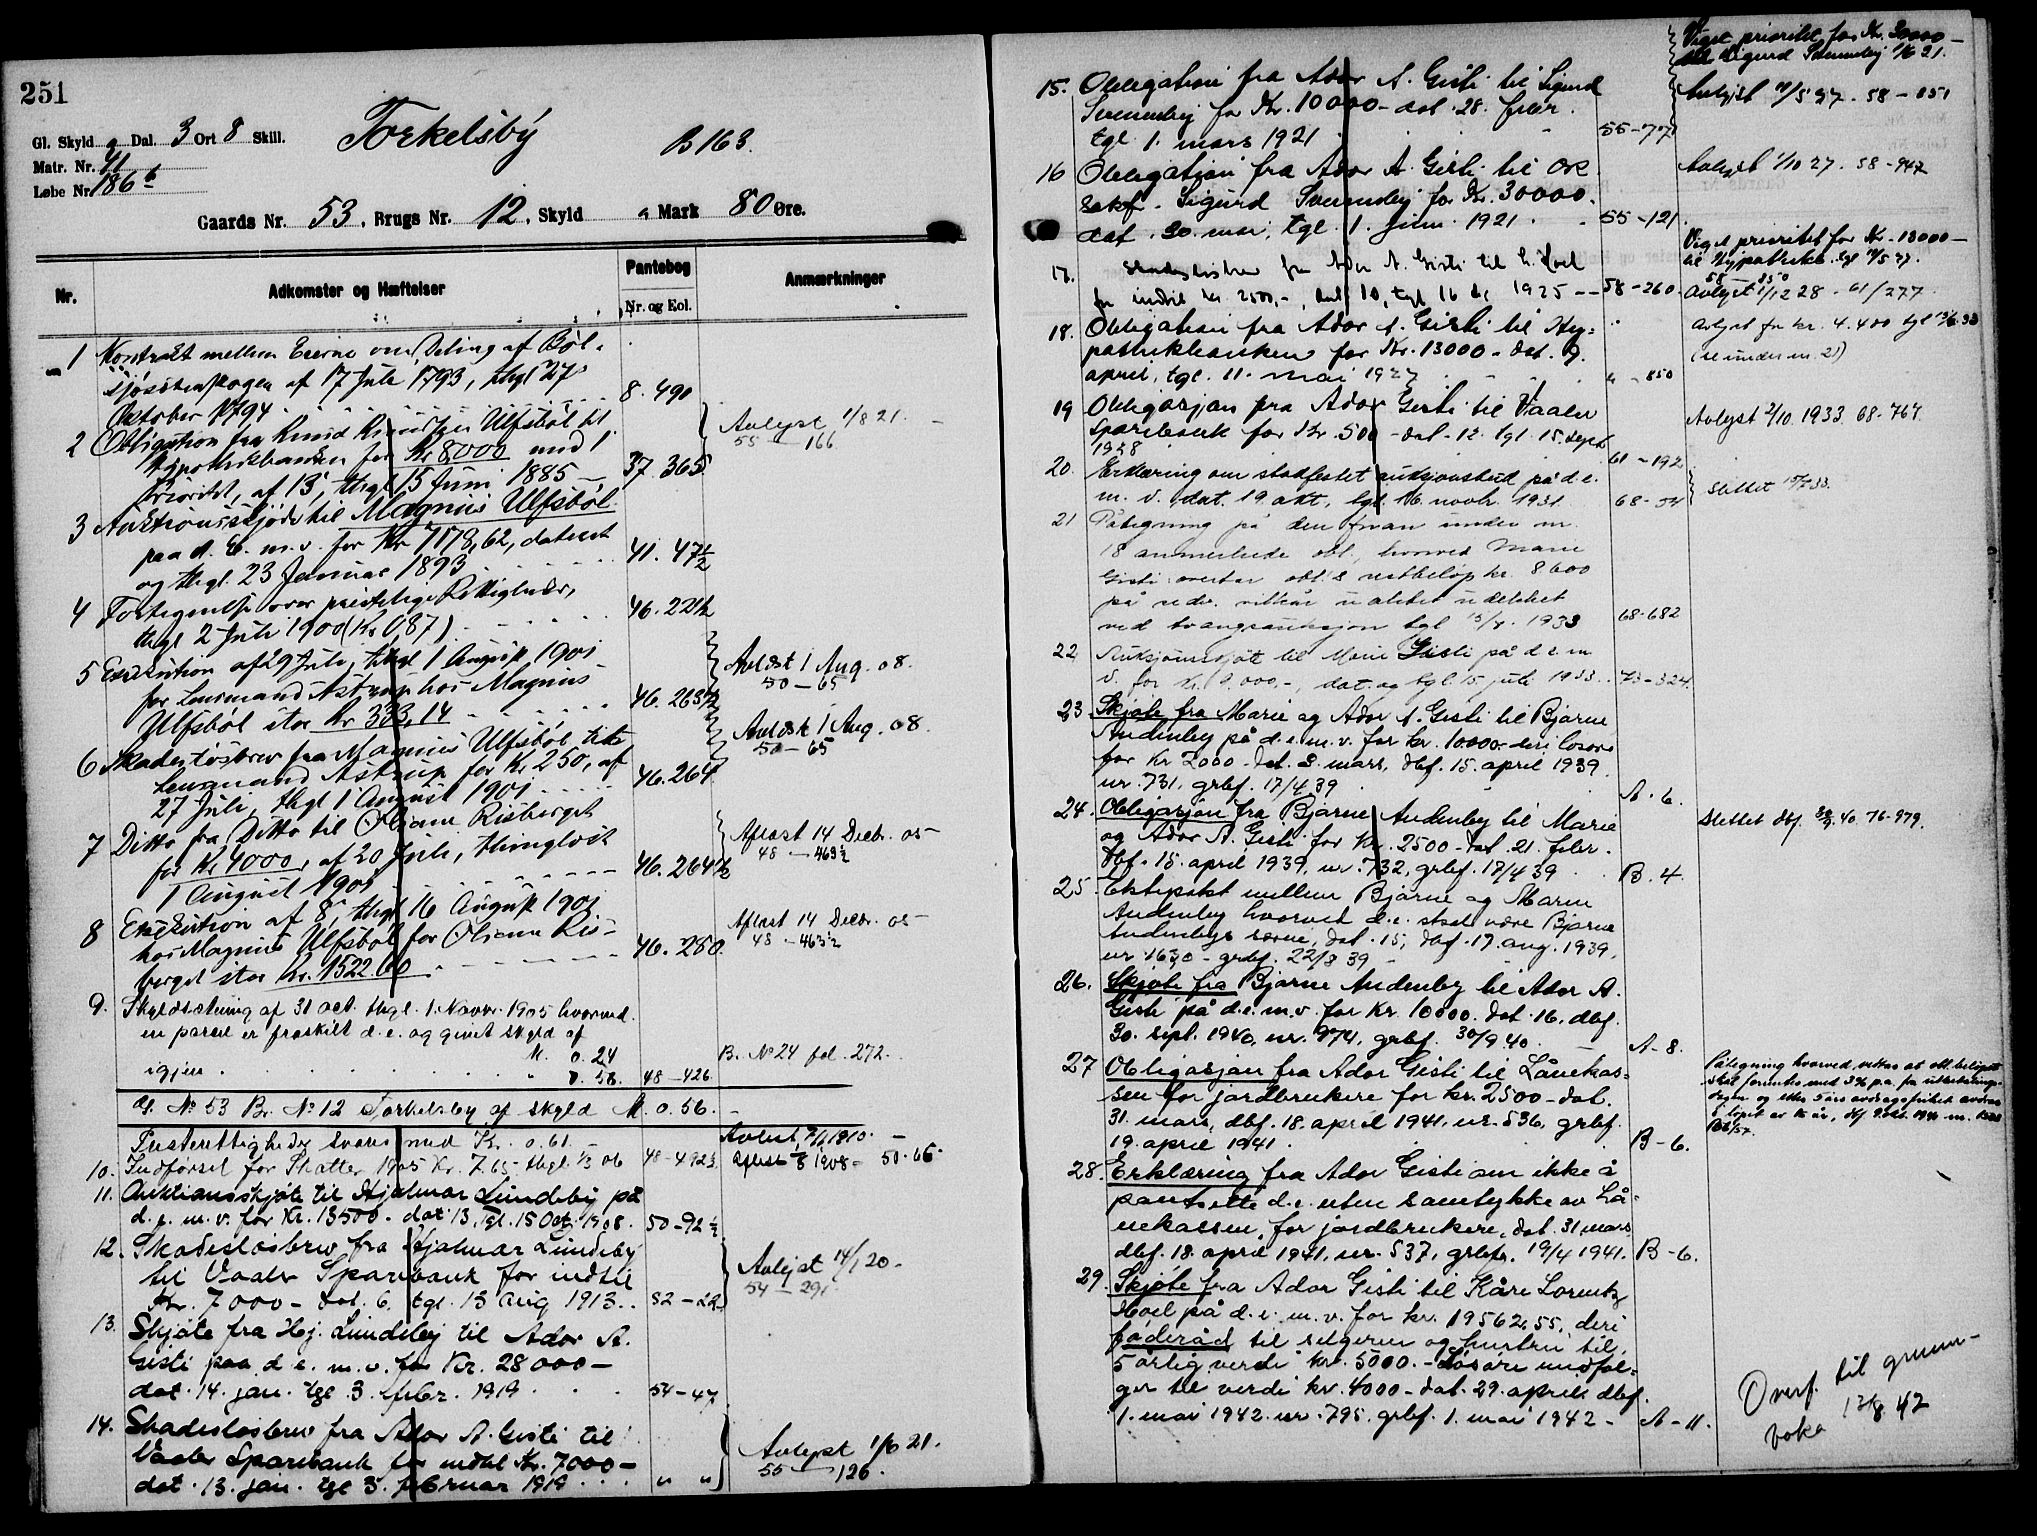 251
Gl. Skyld 2 Dal. 3 Ort 8 Skill.
Matr. Nr. 41
Løbe Nr. 186 b
Torkelsby
B 163.
Gaards Nr. 53, Brugs Nr. 12, Skyld " Mark 80 Øre.
Nr.
Adkomster og Hæftelser
Pantebog
Nr. og Fol.
Anmærkninger
1 Kontrakt mellem Eierne om Deling af Bøl-
sjøsæterskogen af 17 Juli 1793, thgl 27
Oktober 1794. 8. 490
2 Obligation fra Knud Ulfsbøl til
Hypothekbanken for Kr 8000 mod 1
Prioritet, af 13, thgl 15 Juni 1885 37. 365
Avlyst 1/8 21.
55 — 166
3 Auktionsskjøde til Magnus Ulfsbøl
paa d. E. m. v. for Kr 7178,62, dateret
og thgl. 23 Januar 1893 41. 47 1/2
4 Fortegnelse over præstelige Rettigheder,
thgl 2 Juli 1900 (Kr 0,87) 46. 221 1/2
5 Exekution af 29 Juli, thgl 1 August 1901
for Lensmand Astrup hos Magnus
Ulfsbøl stor Kr 333,14 46. 263 1/2
Avlæst 1 Aug. 08.
50 — 65
6 Skadesløsbrev fra Magnus Ulfsbøl til
Lensmand Astrup for Kr 250, af
27 Juli, thgl 1 August 1901 46. 264
Avlæst 1 Aug. 08.
50 — 65
7 Ditto fra Ditto til Oliane Risberget
for Kr 4000, af 20 Juli, thinglyst
1 August 1901 46. 264 1/2
Aflæst 14 Decbr. 05 —
48 — 463 1/2
8 Exekution af 8, thgl 16 August 1901
hos Magnus Ulfsbøl for Oliane Ris-
berget stor Kr. 1522.60 46. 280.
Aflæst 14 Decbr. 05 —
48 — 463 1/2
9. Skyldsætning af 31 oct. thgl. 1. Novbr. 1905 hvorved
en parcel er fraskilt d. e. og givet skyld af
M. 0.24
B. No 24 fol. 272.
igjen " 0.56. 48 — 426.
G. No 53 Br. No 12 Torkelsby af skyld M. 0.56.
Presterettigheder svares med Kr. 0.61.
10. Indførsel for Skatter 1905 Kr. 7.65 thgl. 1/3 06 48 — 492 1/2
50. 66.
11. Auktionsskjøte til Hjalmar Lundeby på
d. e. m. v. for Kr. 13500 - dat 13, tgl. 15 Octb. 1908. 50 — 92 1/2
12. Skadesløsbrev fra Hjalmar Lundeby
til Vaaler Sparebank for indtil
Kr. 7000 - dat. 6, tgl. 13 aug 1913. 52 — 22
Avlyst 14/1 20 —
54 — 291
13. Skjøte fra Hj. Lundeby til Ador A.
Gisti paa d. e. m. v. for Kr. 28000 —
dat. 14. jan. tgl 3. febr. 1919 54 — 47
14. Skadesløsbrev fra Ador A. Gisti til
Vaaler Sparebank for indtil Kr. 7000 —
dat. 13. jan. tgl 3. februar 1919 " "
Avlyst 1/6 21.
55 — 126.
Veget prioritet for Kr. 30000 —
til Sigurd Svenneby 1/6 21.
15. Obligation fra Ador A. Gisti til Sigurd
Svenneby for Kr. 10000 - dat. 28. febr.
tgl. 1. mars 1921 55 — 77
Avlyst 11/5 27. 58 — 851
16 Obligation fra Ador A. Gisti til
Sigurd Svenneby for Kr. 30000.
dat. 30. mai, tgl. 1. juni 1921 55 — 121
Avlyst 1/10 27. 58 — 947
Veget prioritet for Kr. 13000 —
til Hypotekb. tgl 11/5 27.
58 850
17. Skadesløsbrev fra Ador A. Gisti til E. Hoel
for indtil kr. 2500.-, dat 10, tgl 16 1925 — 58 — 260
Avlyst 1/12 28 - 61/277
18. Obligation fra Ador A. Gisti til Hy-
potekbanken for Kr. 13000 - dat. 9.
april, tgl. 11. mai 1927 " — 850
Avlyst for kr. 4.400 tgl 15/8 33
(se under nr. 21)
19 Obligasjon fra Ador Gisti til Vaaler
Sparebank for Kr. 500 - dat. 12. tgl. 15. sept.
1928 61 — 192
Avlyst 2/10 1933 68 - 767.
20. Erklæring om stadfestet auksjonsbud på d. e.
m. v. dat. 19. okt, tgl. 16. novbr. 1931 68 — 54
Slettet 15/7 33.
21 Påtegning på den foran under nr.
18 anmerkede obl., hvorved Marie
Gisti overtar obl.s restbeløp kr. 8600
på vilkår
ved tvangsauksjon tgl 15/8. 1933 68 - 682
22 Auksjonsskjøt til Marie Gisti på d e m
v. for Kr. 9.000,-, dat. og tgl. 15. juli 1933. 73 — 324.
23. Skjøte fra Marie og Ador A. Gisti til Bjarne
Andenby på d. e. m. v. for kr. 10000 - deri løsøre
for Kr 2000 - dat. 3. mars, dbf. 15. april 1939
nr. 731, grbf. 17/4 39 A. 6.
24. Obligasjon fra Bjarne Andenby til Marie
og Ador A. Gisti for Kr. 2500 - dat. 21. febr.
dbf. 15. april 1939, nr. 732, grbf. 17/4 39 B. 4.
Slettet dbf. 30/9. 40. 76 - 979.
25. Ektepakt mellem Bjarne og Maren
Andenby hvorved d. e. skal være Bjarne
Andenbys særeie, dat. 15, dbf. 17. aug. 1939,
nr. 1630 - grbf. 22/8 39 —
26. Skjøte fra Bjarne Andenby til Ador A.
Gisti på d. e. m. v. for Kr. 10000. dat. 16. dbf.
30. sept. 1940, nr. 974, grbf. 30/9 40. A - 8.
27 Obligasjon fra Ador Gisti til Lånekas-
sen for jordbrukere for kr. 2500 - dat.
31. mars, dbf. 18. april 1941, nr. 536, grbf.
19. april 1941. B — 6.
Påtegning hvorved vedtas at obl. beløpet
skal forrentes med 3% p.a. fra utbetalings-
dagen og etter 5 års avdragsfrihet
28. Erklæring fra Ador Gisti om ikke å
pantsette d. e. uten samtykke av Lå-
nekassen for jordbrukere, dat. 31. mars
dbf. 18. april 1941, nr. 537, grbf. 19/4 1941. B — 6.
29. Skjøte fra Ador Gisti til Kåre Lorentz
Hoel på d. e. m. v. for kr. 19562.55, deri
føderåd til selgeren og hustru til
5 årlig verdi kr. 5000. - Løsøre medføl-
ger til verdi kr. 4000 - dat. 29. april, dbf.
1. mai 1942 nr. 795. grbf. 1. mai 1942 - A — 11.
Overf. til grunn-
boka 12/8 42